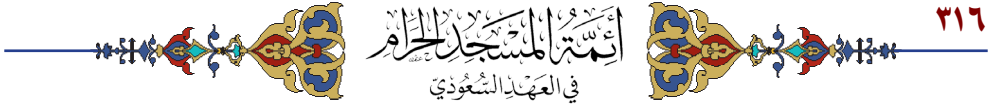 ٣١٦
أَئِمَّةُ المَسْجِدِ الحَرَامِ
في العَهْدِ السُّعُودِيّ